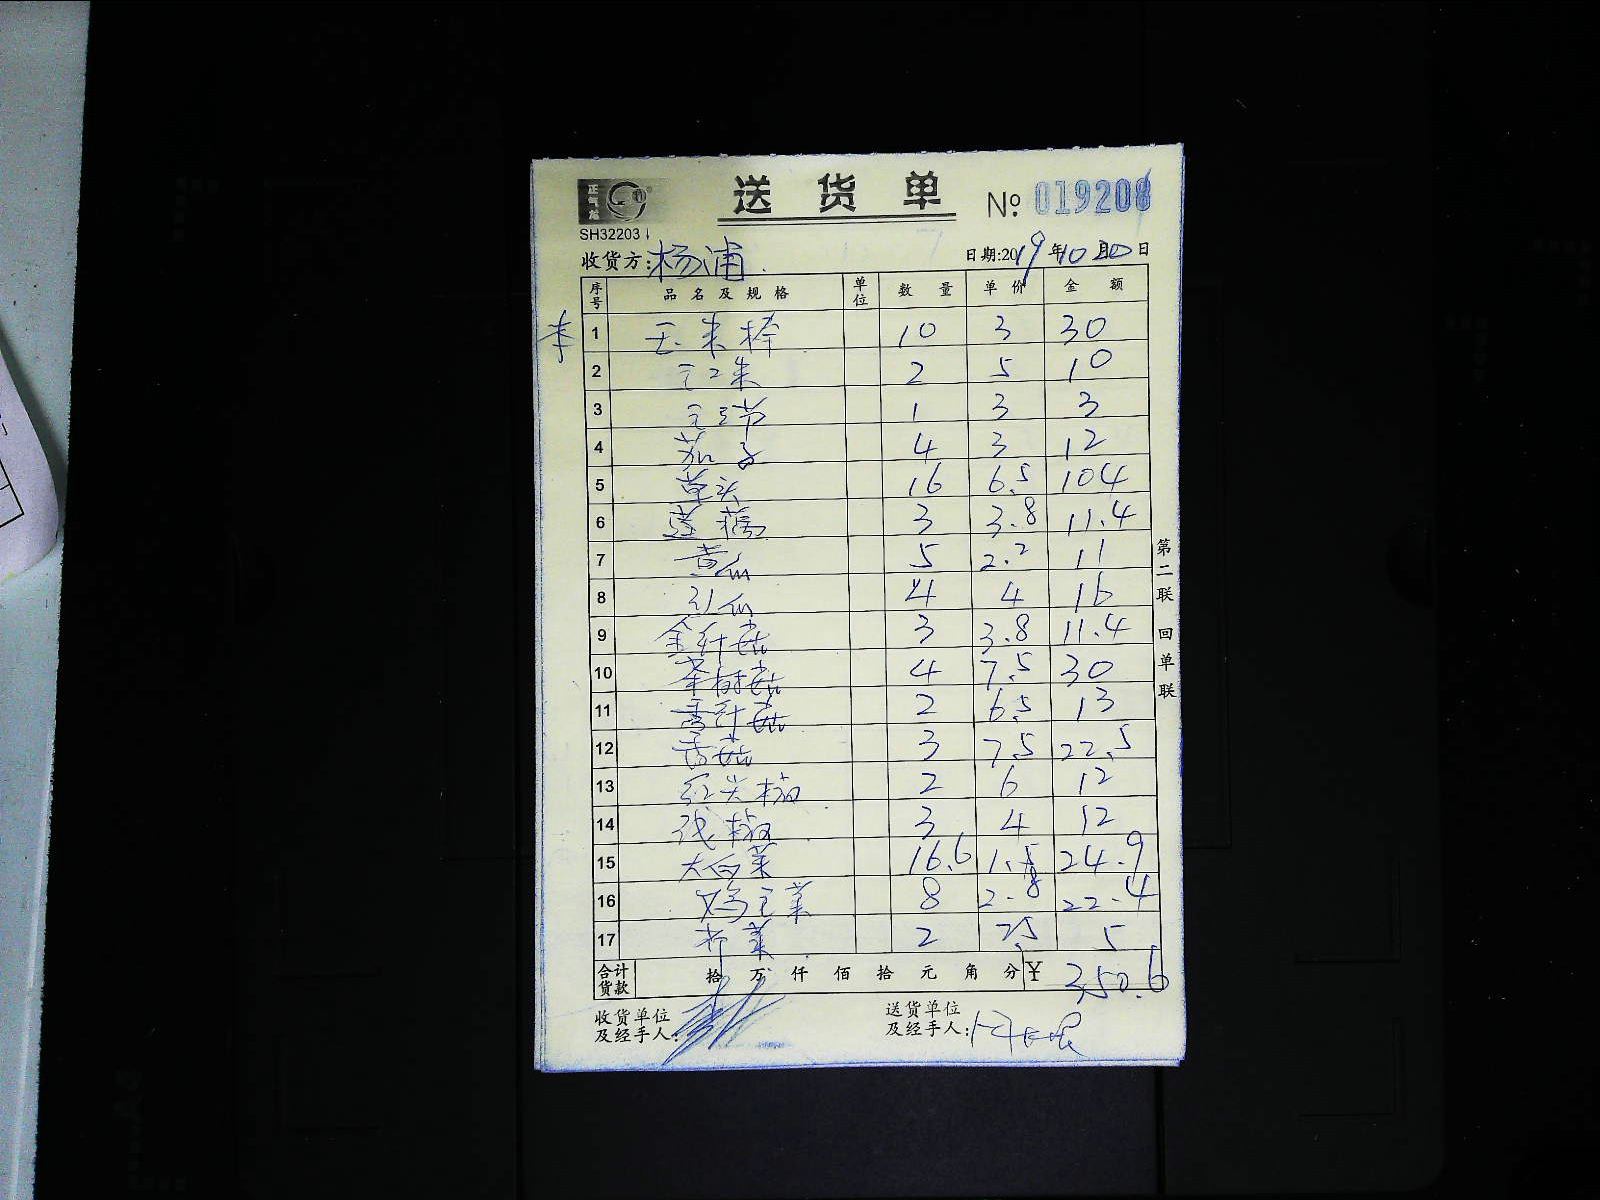 正气龙
送 货 单 № 019208
SH32203
收货方: 杨浦 日期:2019年10月20日
序号 品 名 及 规 格 单位 数 量 单 价 金 额
1 玉米棒 10 3 30
2 2 5 10
3 1 3 3
4 茄子 4 3 12
5 草头 16 6.5 104
6 3 3.8 11.4
7 黄瓜 5 2.2 11
8 瓜 4 4 16
9 金针菇 3 3.8 11.4
10 茶树菇 4 7.5 30
11 菇 2 6.5 13
12 香菇 3 7.5 22.5
13 2 6 12
14 椒 3 4 12
15 大白菜 16.6 1.5 24.9
16 鸡毛菜 8 2.8 22.4
17 菜 2 2.5 5
合计货款 拾 万 仟 佰 拾 元 角 分 ¥ 350.6
收货单位 送货单位
及经手人: 及经手人:
第二联 回单联